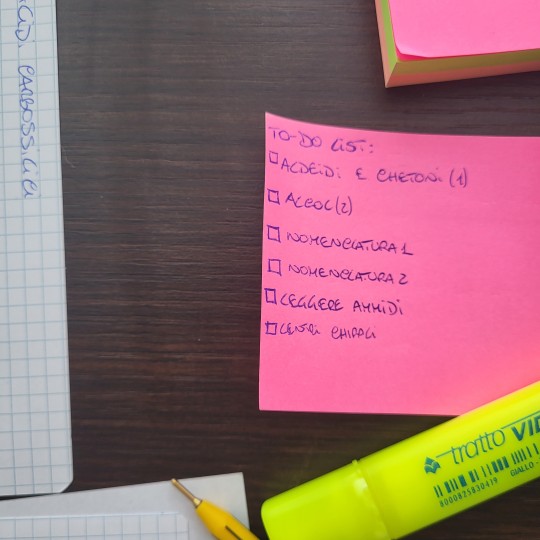 ACIDI CARBOSSILICI
TO-DO LIST:
ALDEIDI E CHETONI (1)
ALCOL (2)
NOMENCLATURA 1
NOMENCLATURA 2
LEGGERE AMMIDI
CENTRI CHIRALI
tratto VID
8000825830419
GIALLO